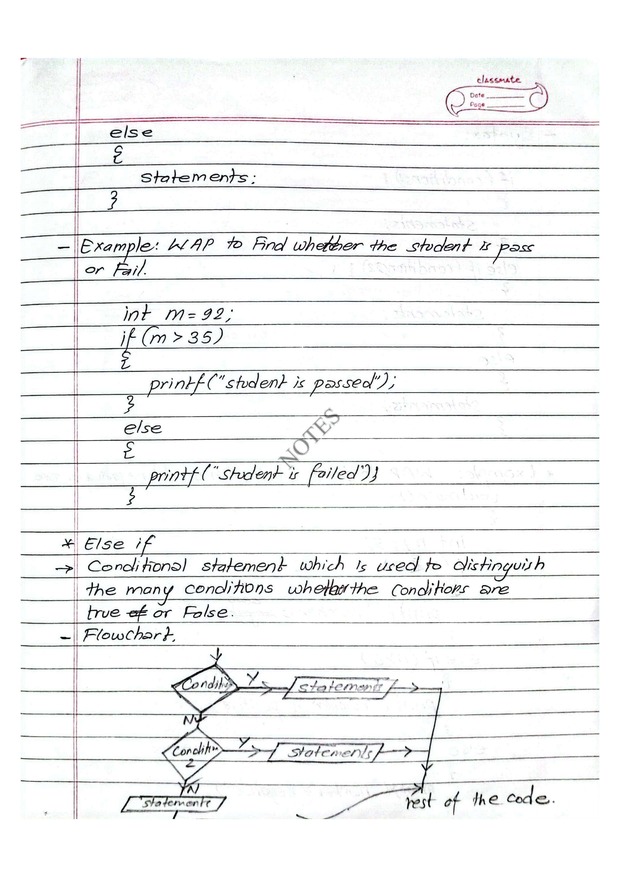 classmate
Date
Page
else
{
statements;
}
- Example: WAP to Find whether the student is pass
or Fail.
int m = 92;
if (m > 35)
{
printf("student is passed");
}
else
{
printf("student is failed");
}
NOTES
* Else if
→ Conditional statement which is used to distinguish
the many conditions whether the Conditions are
true of or False.
- Flowchart,
Condition Y statements
N
Condition 2 Y statements
N
statements
rest of the code.